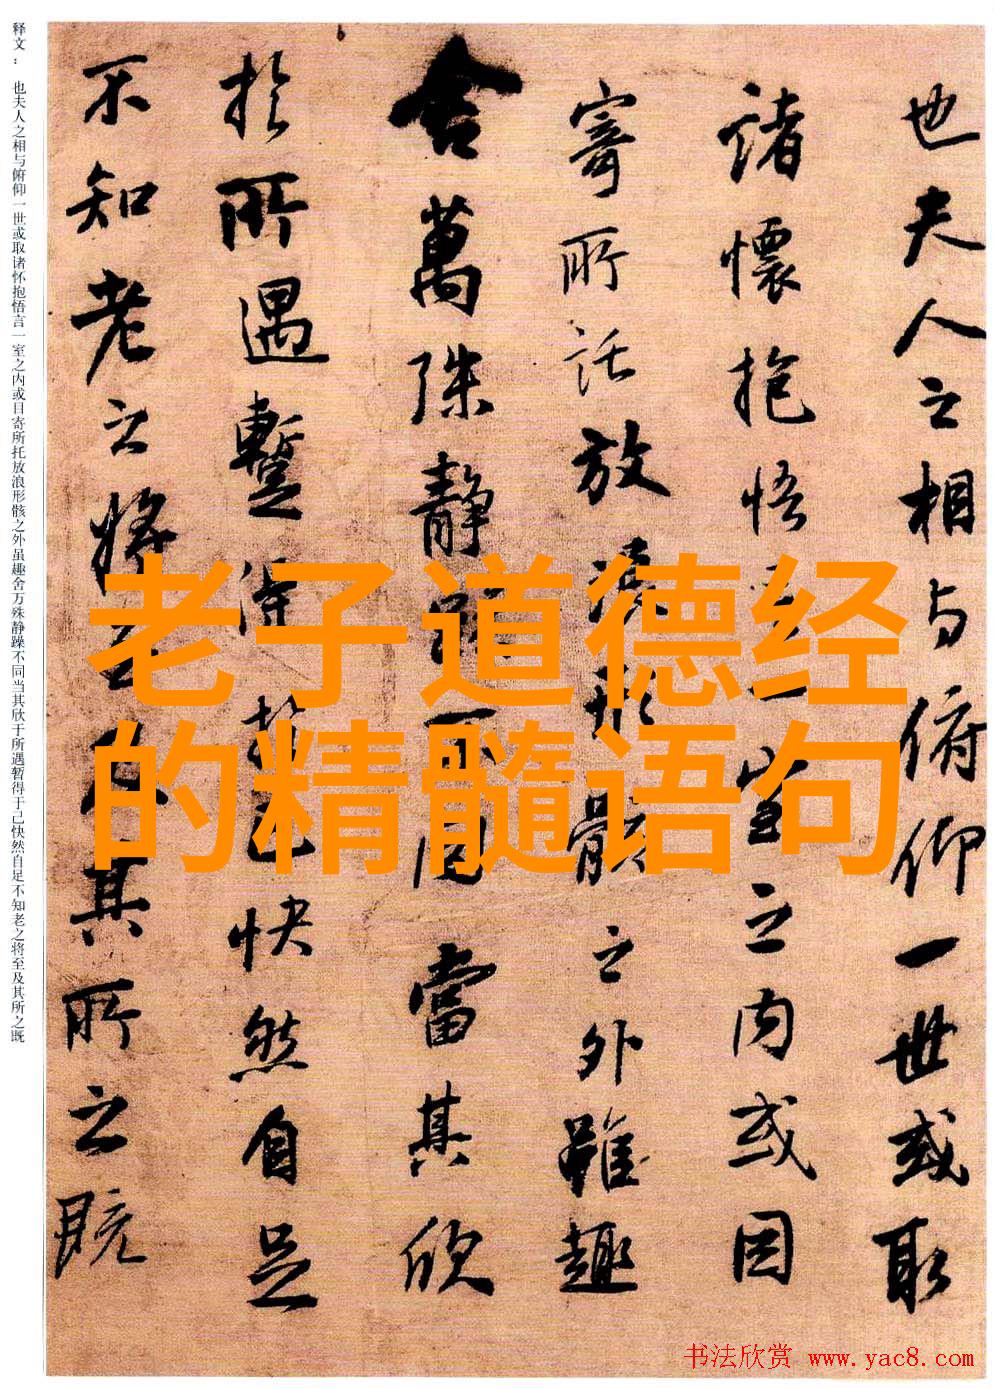 老子道德经
的精髓语句
也夫人之相与俯仰一世或取
諸懷抱悟言一室之内或因
寄所託放浪形骸之外雖趣
舍萬殊静躁不同當其欣
於所遇蹔得於己快然自足
不知老之将至及其所之既
释文： 也夫人之相与俯仰一世或取诸怀抱悟言一室之内或目寄所托放浪形骸之外虽趣舍万殊静躁不同当其欣于所遇暂得于己快然自足不知老之将至及其所之既
书法欣赏 www.yac8.com